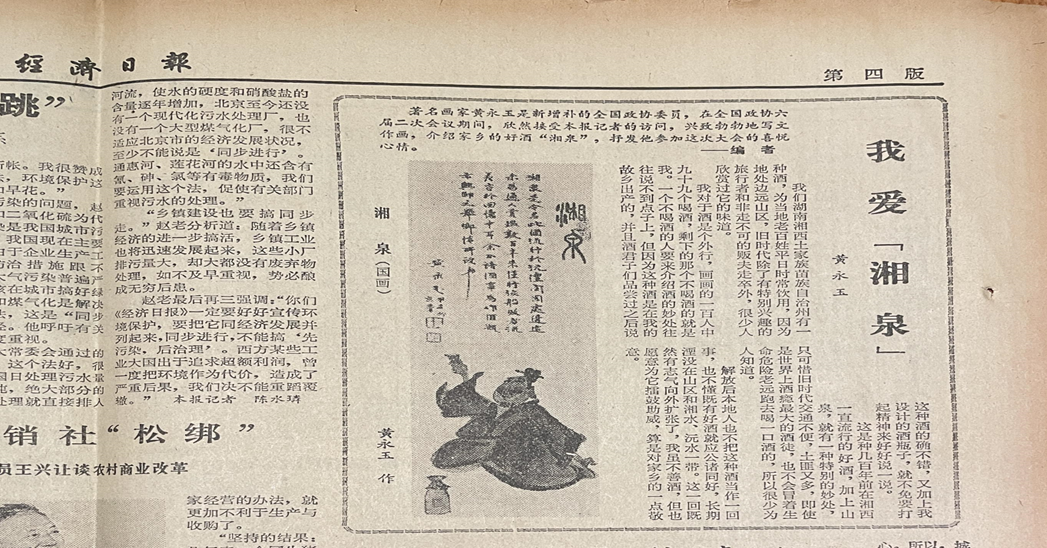 經濟日報
第四版
跳”
河流，使水的硬度和硝酸盐的
含量逐年增加，北京至今还没
有一个现代化污水处理厂，也
没有一个大型煤气化厂，很不
适应北京市的经济发展状况，
至少不能说是‘同步进行’。
通惠河、莲花河的水中还含有
氰、砷、氯等有毒物质，我们
要运用这个法，促使有关部门
重视污水的处理。”
“乡镇建设也要搞同步
走。”赵老分析道：随着乡镇
经济的进一步搞活，乡镇工业
也将迅速发展起来，这些小厂
排污量大，却大都没有废弃物
处理，如不及早重视，势必酿
成无穷后患。
赵老最后再三强调：“你们
《经济日报》一定要好好宣传环
境保护，要把它同经济发展并
列起来，同步进行，不能搞‘先
污染，后治理’。西方某些工
业大国出于追求超额利润，曾
一度把环境作为代价，造成了
严重后果，我们决不能重蹈覆
辙。” 本报记者 陈水璘
销社“松绑”
员王兴让谈农村商业改革
家经营的办法，就
更加不利于生产与
收购了。
“坚持的结果：
著名画家黄永玉是新增补的全国政协委员，在全国政协六
届二次会议期间，欣然接受本报记者的访问，兴致勃勃地写文
作画，介绍家乡的好酒“湘泉”，抒发他参加这次大会的喜悦
心情。
——编 者
我爱「湘泉」
黄永玉
我们湖南湘西土家族苗族自治州有一
种酒，为当地老百姓平日时常饮用，因为
地处边远山区，旧时代除了有特别兴趣的
旅行者和非走不可的贩夫走卒外，很少人
欣赏过它的味道。
我对于酒是个外行，画画的一百人中
九十九个喝酒，剩下的那个不喝酒的就是
我。一个不喝酒的人要来介绍酒的妙处往
往说不到点子上，但因为这种酒是在我的
故乡出产的，并且酒君子们品尝过之后说
这种酒的确不错，又加上我
设计的酒瓶子，就不免要打
起精神来好好说一说。
这是种几百年前在湘西
一直流行的好酒，加上山
泉，就有一种特别的妙处，
只可惜旧时代交通不便，土匪又多，即使
是世界上酒瘾最大的酒徒，也不会冒着生
命危险老远跑去喝一口酒的，所以很少为
人知道。
解放后本地人也不把这种酒当作一回
事，也不懂既有好酒就应公诸同好，长期
湮没在山区和湘水、沅水一带。这一回既
然有志气向外扩张了，我虽不善酒，但也
愿意为它擂鼓助威，算是对家乡的一点敬
意。
湘泉
湘 泉（国画）
黄永玉 作